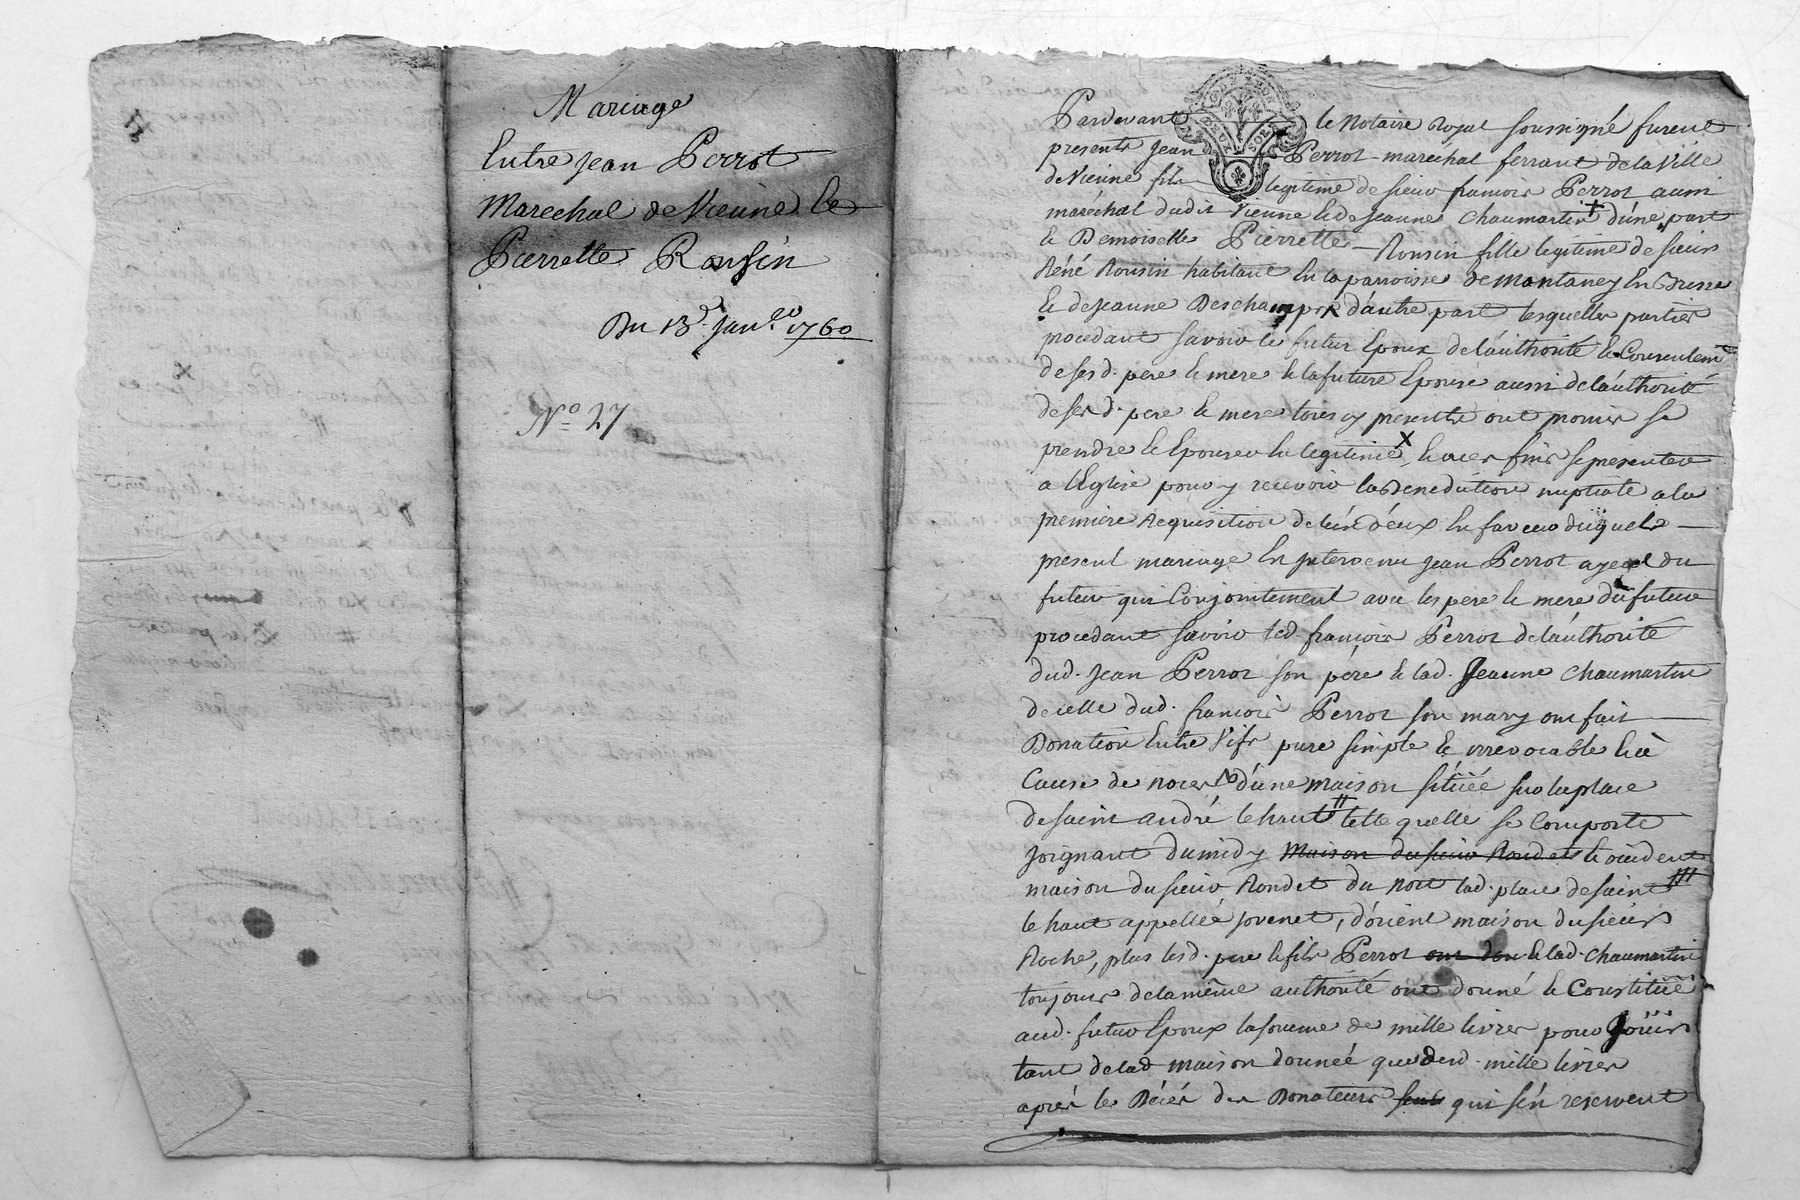 Mariage
Entre jean Perrot
Marechal de Vienne &
Pierrette Ronsin
Du 13e. janv.er 1760
No 27
Pardevant le Notaire Royal soussigné furent
presents jean Perrot marechal ferrant de la Ville
de Vienne fils legitime de sieur francois Perrot aussi
maréchal dudit Vienne & de jeanne Chaumartin + d'une part
& Demoiselle Pierrette Ronsin fille legitime de sieur
Réné Ronsin habitant en la parroisse de Montaney en Bresse
& de jeanne Deschamps d'autre part lesquelles parties
procedant savoir le futur Epoux de l'authorité & Consentemt
de sesd. pere & mere & la future Epouse aussi de l'authorité
de sesd. pere & mere tous cy presents ont promis se
prendre & Epouser en legitime X & a ces fins se presenter
a l'Eglise pour y recevoir la Benediction nuptiale a la
premiere Requisition de l'un d'eux En faveur duquel
present mariage En intervenu jean Perrot ayeul du
futur qui Conjointement avec les pere & mere du futur
procedant savoir led. francois Perrot de l'authorité
dud. jean Perrot son père & lad. Jeanne Chaumartin
de celle dud. francois Perrot son mary ont fait
Donation Entre Vifs pure simple & irrevocable & à
Cause de noces d'une maison située sur la place
de saint andré le haut // telle quelle se Comporte
joignant du midy Maison du sieur Rondet & occident
maison du sieur Rondet du nort lad. place de saint ///
le haut appellée jovenet, d'orient maison du sieur
Roche, plus lesd. pere & fils Perrot ont don & lad. Chaumartin
toujours de la même authorité ont donné & Constitué
aud. futur Epoux la somme de mille livres pour joüir
tant de lad. maison donnée que desd. mille livres
après le Décés des Donateurs seul qui s'en reservent